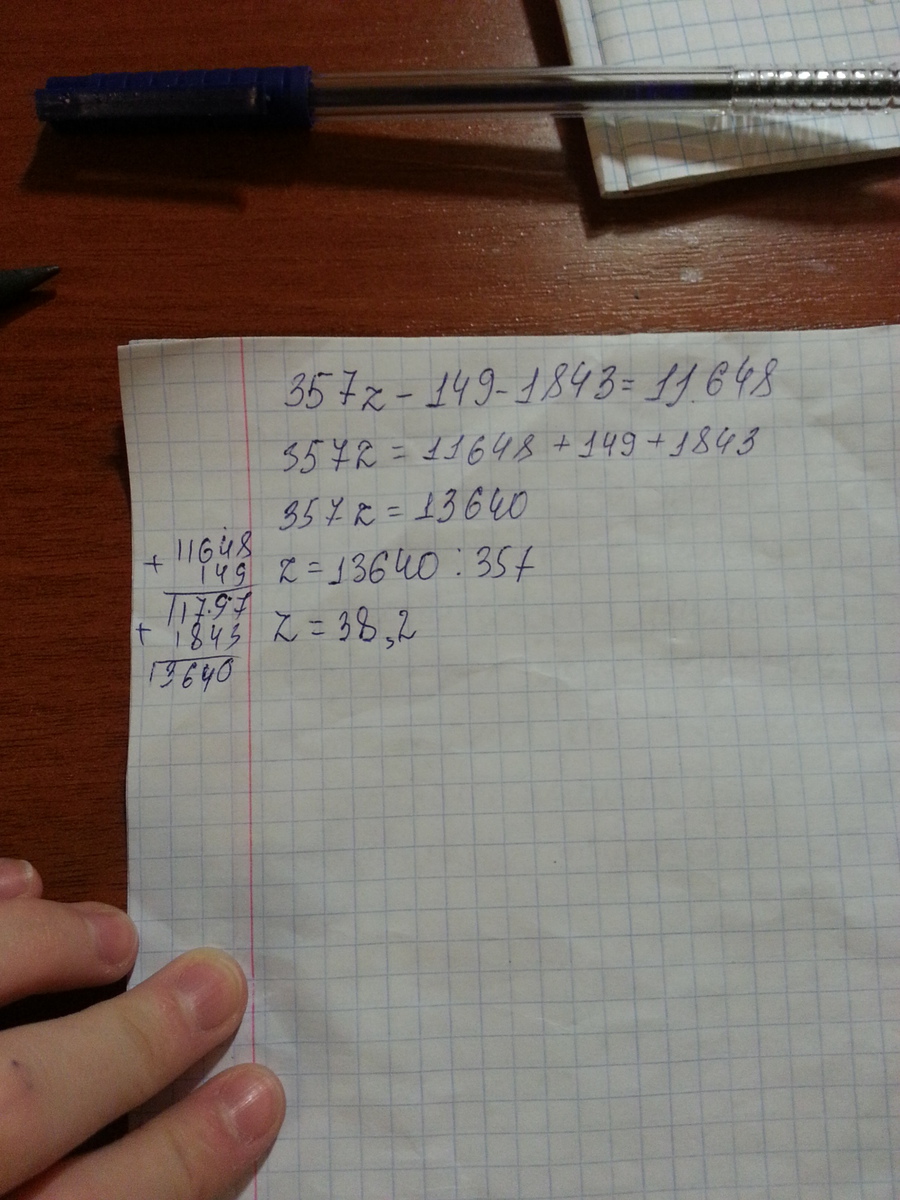 357z - 149 - 1843 = 11.648
357z = 11648 + 149 + 1843
357z = 13640
z = 13640 : 357
z = 38,2
+ 11648
149
11797
+ 1843
13640